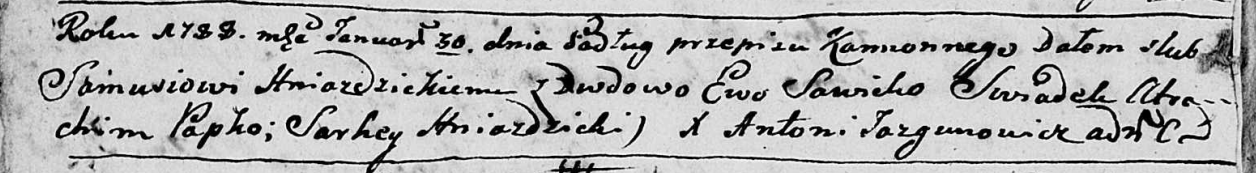 Roku 1788. msca Januari 30. dnia sadług przepisu Kanonnego dałem slub
Samusiowi Hniazdzickiemu z Wdowo Ewo Sawicko Swiadek Atra-
chim Papko; Sarhey Hniazdzicki) X Antoni Jazgunowicz